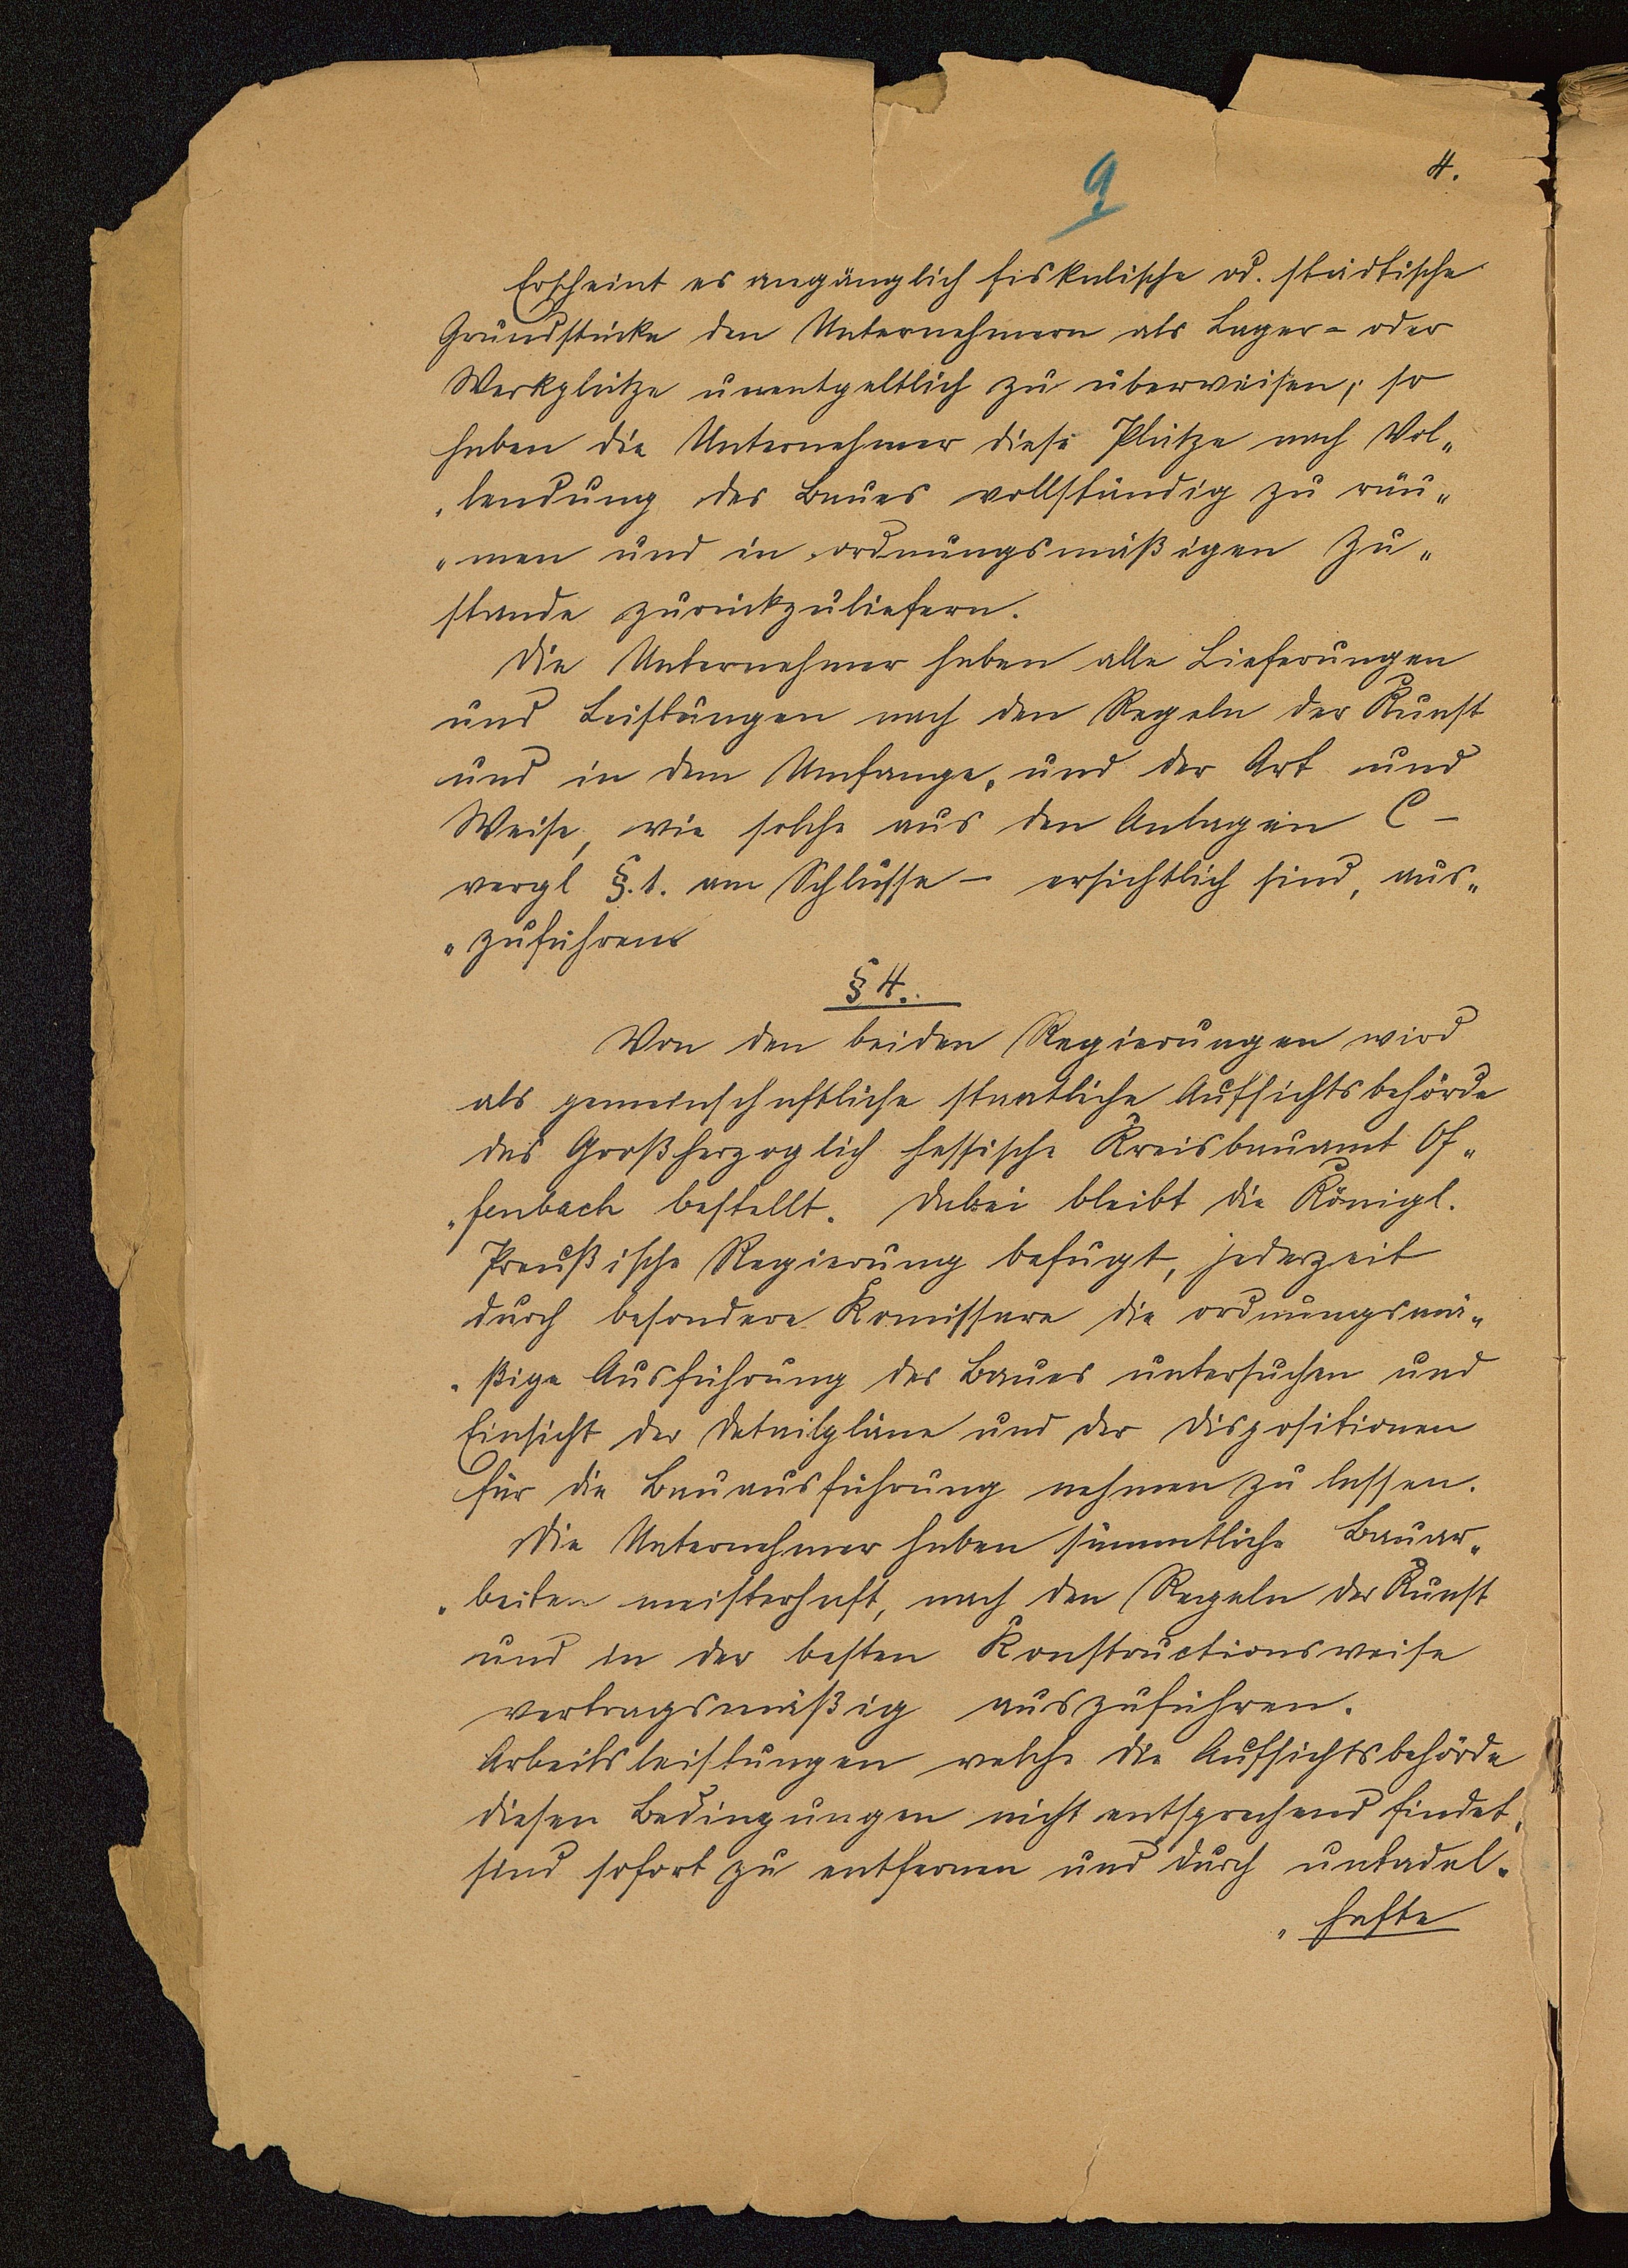 9
4.
Erscheint es angänglich fiskalische od. städtische
Grundstücke den Unternehmern als Lager- oder
Werkplätze unentgeltlich zu überweisen, so
haben die Unternehmer diese Plätze nach Vol„
„lendung des Baues vollständig zu räu„
„men und in ordnungsmäßigen Zu„
stande zurückzuliefern.
Die Unternehmer haben alle Lieferungen
und Leistungen nach den Regeln der Kunst
und in dem Umfange, und der Art und
Weise, wie solche aus den Anlagen C –
vergl §.1. am Schlusse – ersichtlich sind, aus„
„zuführen
§ 4.
Von den beiden Regierungen wird
als gemeinschaftliche staatliche Aufsichtsbehörde
das Großherzoglich hessische Kreisbauamt Of„
„fenbach bestellt. Dabei bleibt die Königl.
Preußische Regierung befugt, jederzeit
durch besondere Komissare die ordnungsmä„
„ßige Ausführung des Baues untersuchen und
Einsicht der Detailpläne und der Dispositionen
für die Bauausführung nehmen zu lassen.
Die Unternehmer haben sämmtliche Bauar„
„beiten meisterhaft, nach den Regeln der Kunst
und in der besten Konstructionsweise
vertragsmäßig auszuführen.
Arbeitsleistungen welche die Aufsichtsbehörde
diesen Bedingungen nicht entsprechend findet,
sind sofort zu entfernen und durch untadel„
„hafte